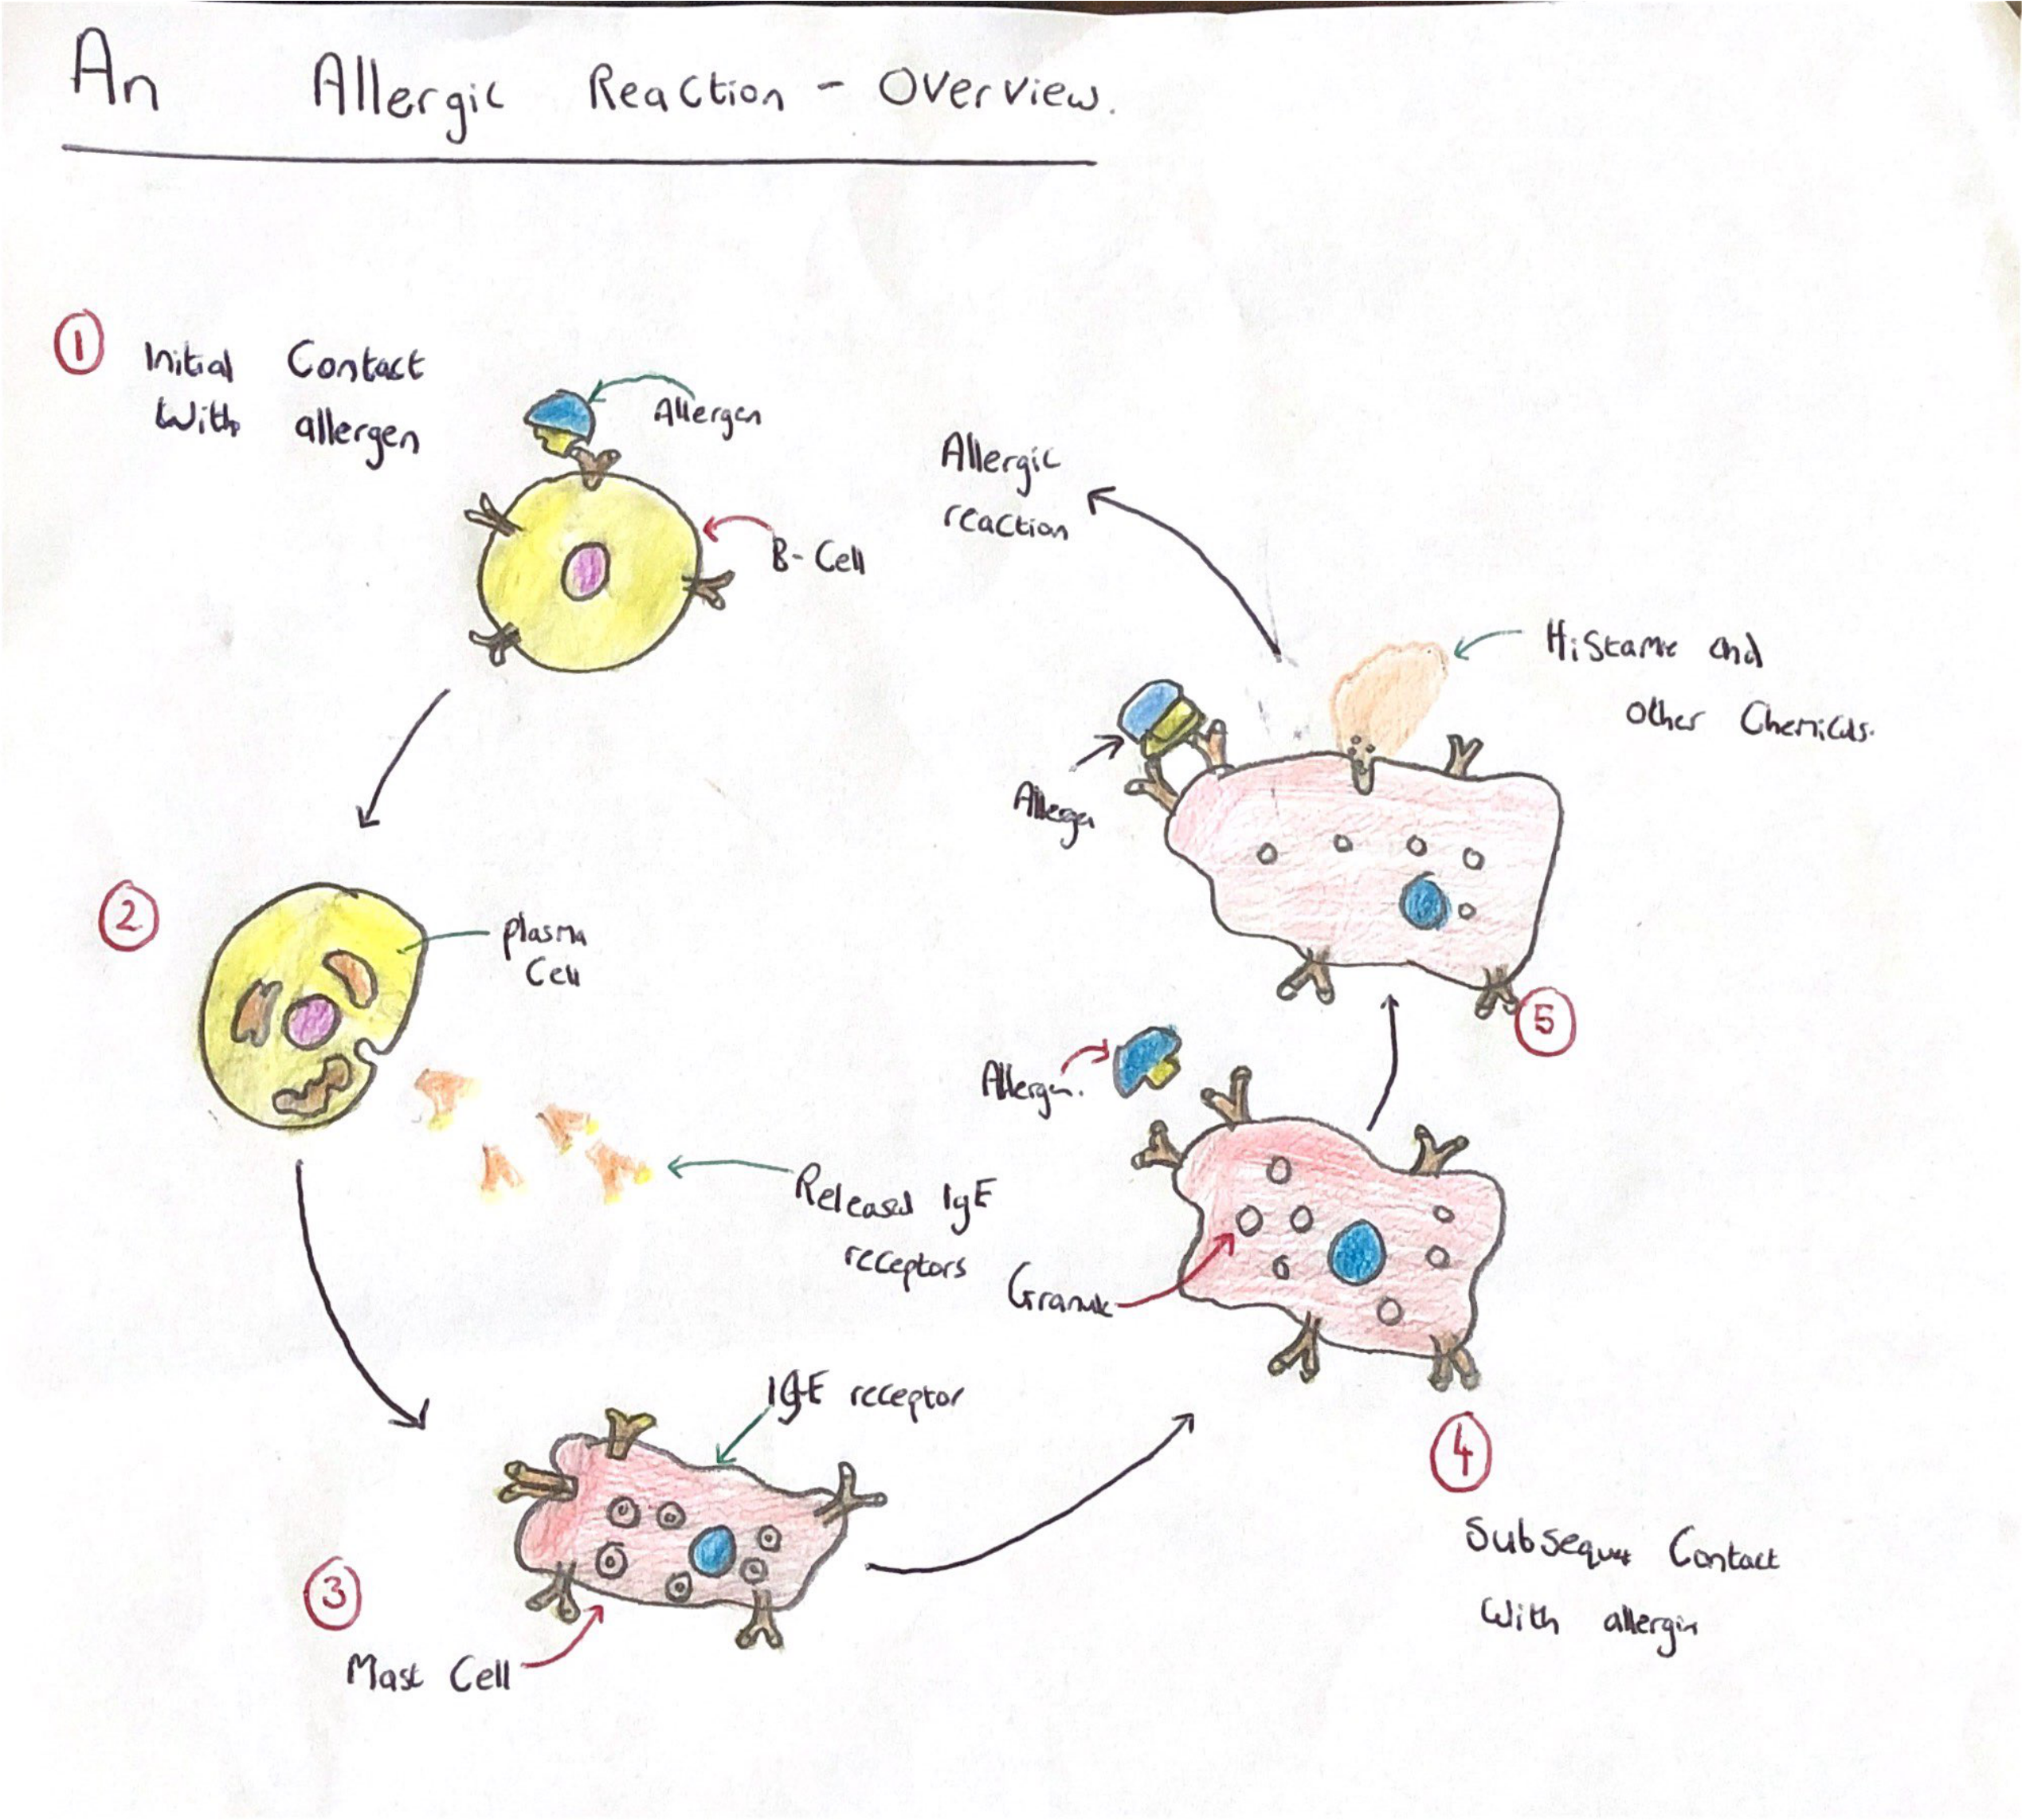 An Allergic Reaction - Overview.
1 Initial Contact
With allergen
Allergen
B-Cell
2
Plasma
Cell
Released IgE
receptors
3
IgE receptor
Mast Cell
4
Subsequet Contact
With allergin
Allergen.
Granule
5
Allergen
Histamie and
other Chemicals.
Allergic
reaction